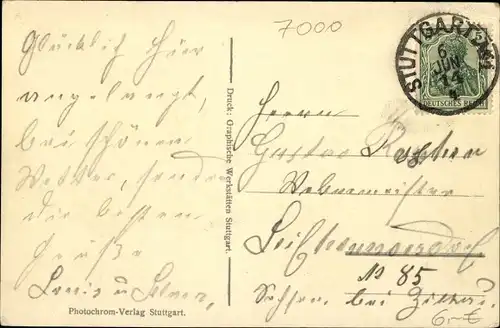 7000
Glücklich hier
angelangt,
bei schönem
Wetter, senden
die besten
Grüße
Louis u.
Photochrom-Verlag Stuttgart.
Druck: Graphische Werkstätten Stuttgart.
STUTTGART
6
JUN
14
DEUTSCHES REICH
Herrn
Gustav
Webermeister
No 85
Sachsen. bei Zittau.
6.-€